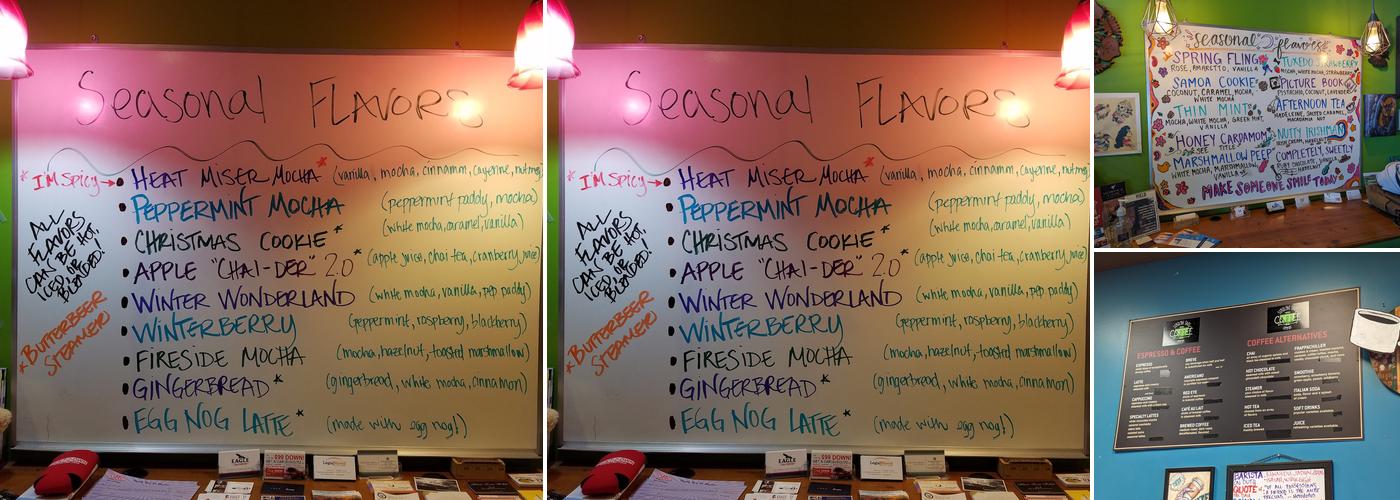 Seasonal FLAVORS
* I'M SPICY → • HEAT MISER MOCHA * (vanilla, mocha, cinnamm, cayenne, nutmeg
• PEPPERMINT MOCHA (peppermint paddy, mocha)
• CHRISTMAS COOKIE * (white mocha, caramel, vanilla)
• APPLE "CHAI-DER" 2.0 * (apple juice, chai tea, cranberry juice)
• WINTER WONDERLAND (white mocha, vanilla, pep paddy)
• WINTERBERRY (peppermint, raspberry, blackberry)
• FIRESIDE MOCHA (mocha, hazelnut, toasted marshmallow)
• GINGERBREAD * (gingerbread, white mocha, cinnamon)
• EGG NOG LATTE * (made with egg nog!)
ALL
FLAVORS
CAN BE HOT,
ICED, OR
BLENDED!
* BUTTERBEER
STEAMER
EAGLE
$99 DOWN!
Seasonal FLAVORS
* I'M SPICY → • HEAT MISER MOCHA * (vanilla, mocha, cinnamm, cayenne, nutmeg
• PEPPERMINT MOCHA (peppermint paddy, mocha)
• CHRISTMAS COOKIE * (white mocha, caramel, vanilla)
• APPLE "CHAI-DER" 2.0 * (apple juice, chai tea, cranberry juice)
• WINTER WONDERLAND (white mocha, vanilla, pep paddy)
• WINTERBERRY (peppermint, raspberry, blackberry)
• FIRESIDE MOCHA (mocha, hazelnut, toasted marshmallow)
• GINGERBREAD * (gingerbread, white mocha, cinnamon)
• EGG NOG LATTE * (made with egg nog!)
ALL
FLAVORS
CAN BE HOT,
ICED, OR
BLENDED!
* BUTTERBEER
STEAMER
EAGLE
$99 DOWN!
seasonal flavors
SPRING FLING
ROSE, AMARETTO, VANILLA
SAMOA COOKIE
COCONUT, CARAMEL, MOCHA,
WHITE MOCHA
THIN MINT
MOCHA, WHITE MOCHA, GREEN MINT,
VANILLA
HONEY CARDAMOM
SEE TITLE
MARSHMALLOW PEEP
WHITE MOCHA, MARSHMALLOW,
VANILLA
TUXEDO STRAWBERRY
MOCHA, WHITE MOCHA, STRAWBERRY
PICTURE BOOK
PISTACHIO, COCONUT, LAVENDER
AFTERNOON TEA
MADELEINE, SALTED CARAMEL,
MACADAMIA NUT
NUTTY IRISHMAN
COMPLETELY, SWEETLY
MAKE SOMEONE SMILE TODAY
COFFEE
COFFEE
ESPRESSO & COFFEE
ESPRESSO
LATTE
CAPPUCCINO
SPECIALTY LATTES
BREVE
AMERICANO
RED EYE
CAFÉ AU LAIT
BREWED COFFEE
COFFEE ALTERNATIVES
CHAI
HOT CHOCOLATE
STEAMER
HOT TEA
ICED TEA
FRAPPACHILLER
SMOOTHIE
ITALIAN SODA
SOFT DRINKS
JUICE
BARISTA
QUOTE